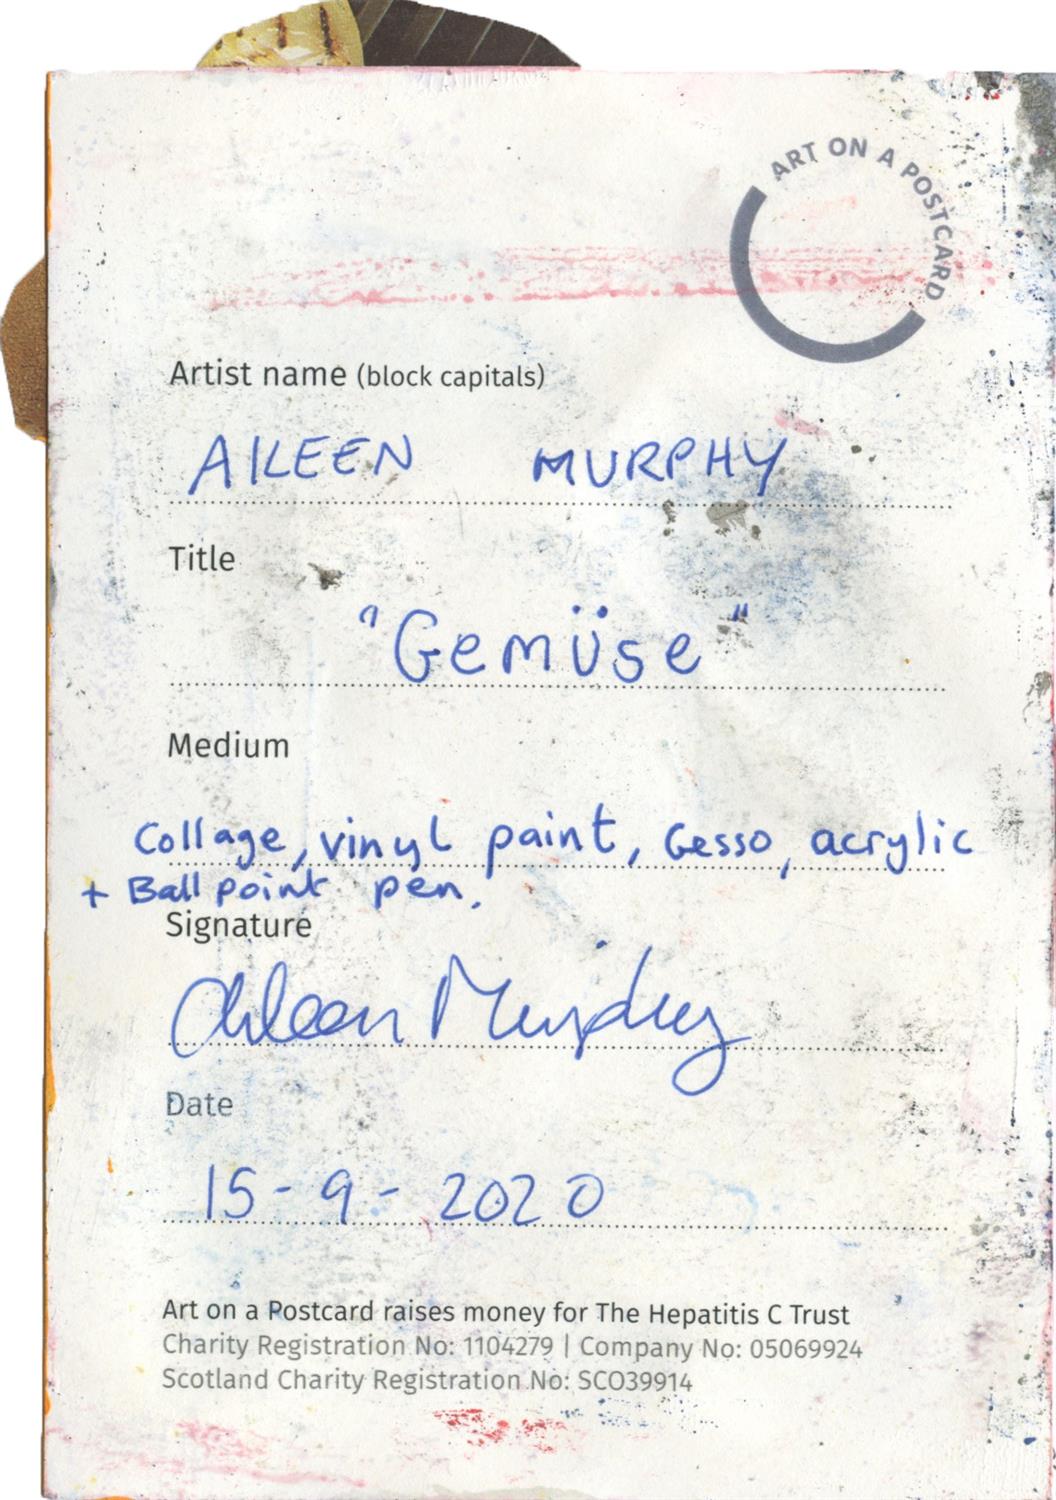 ART ON A POSTCARD
Artist name (block capitals)
AILEEN MURPHY
Title
"Gemüse"
Medium
Collage, vinyl paint, Gesso, acrylic
+ Ball point pen.
Signature
Aileen Murphy
Date
15-9-2020
Art on a Postcard raises money for The Hepatitis C Trust
Charity Registration No: 1104279 | Company No: 05069924
Scotland Charity Registration No: SCO39914